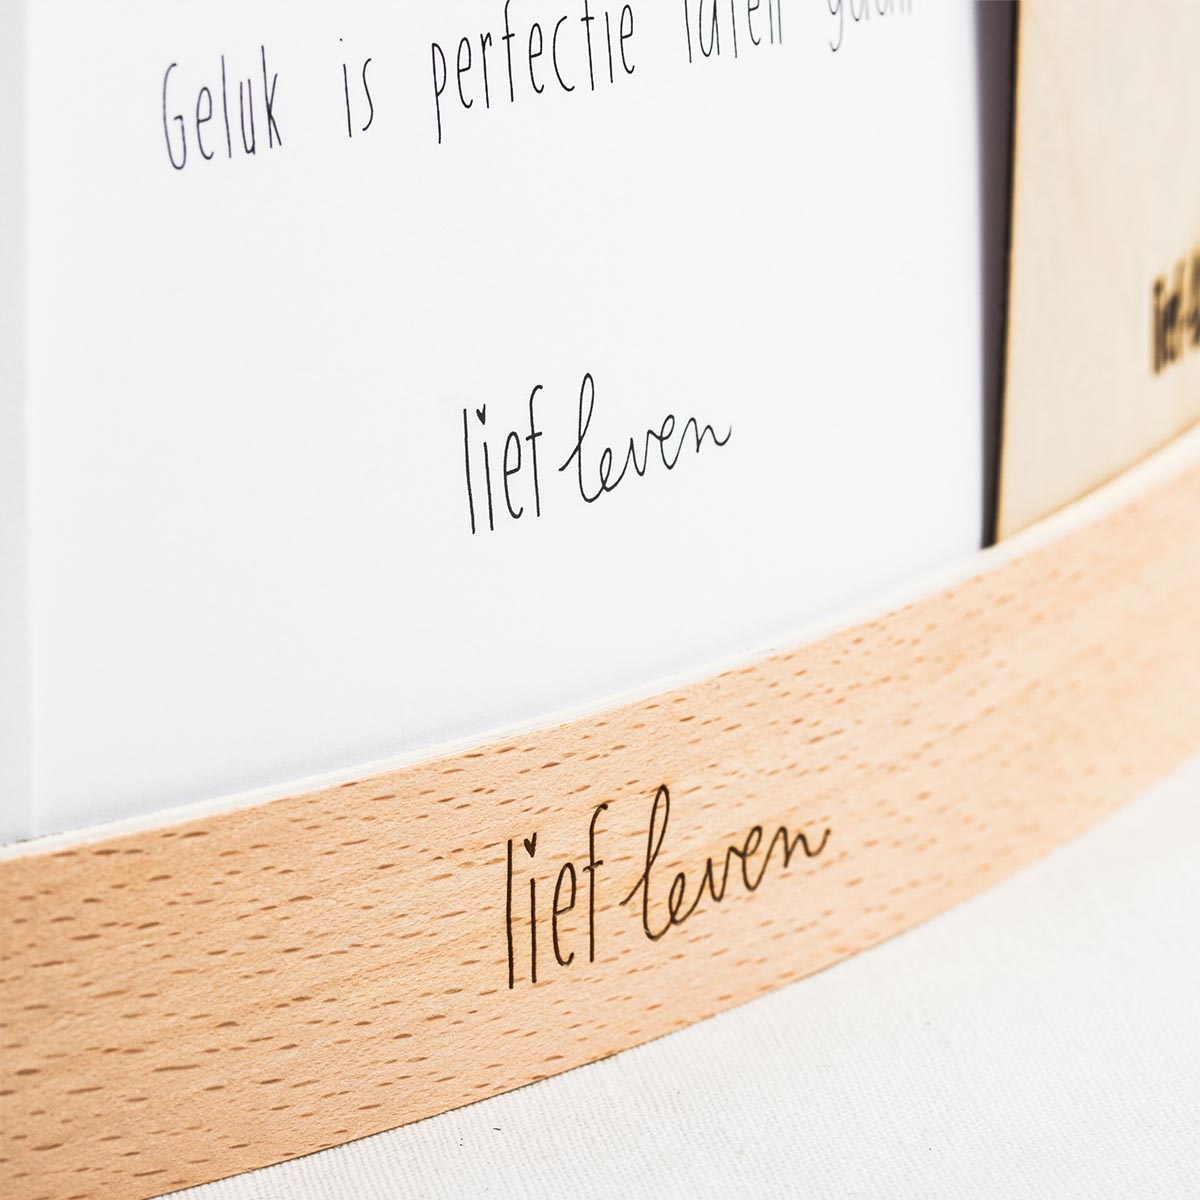 Geluk is perfectie laten
lief leven
lief leven